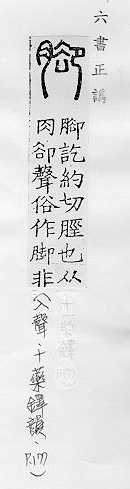 六書正譌
腳
腳訖約切脛也从
肉卻聲俗作脚非
(入聲、十藥鐸韻、
P.177)